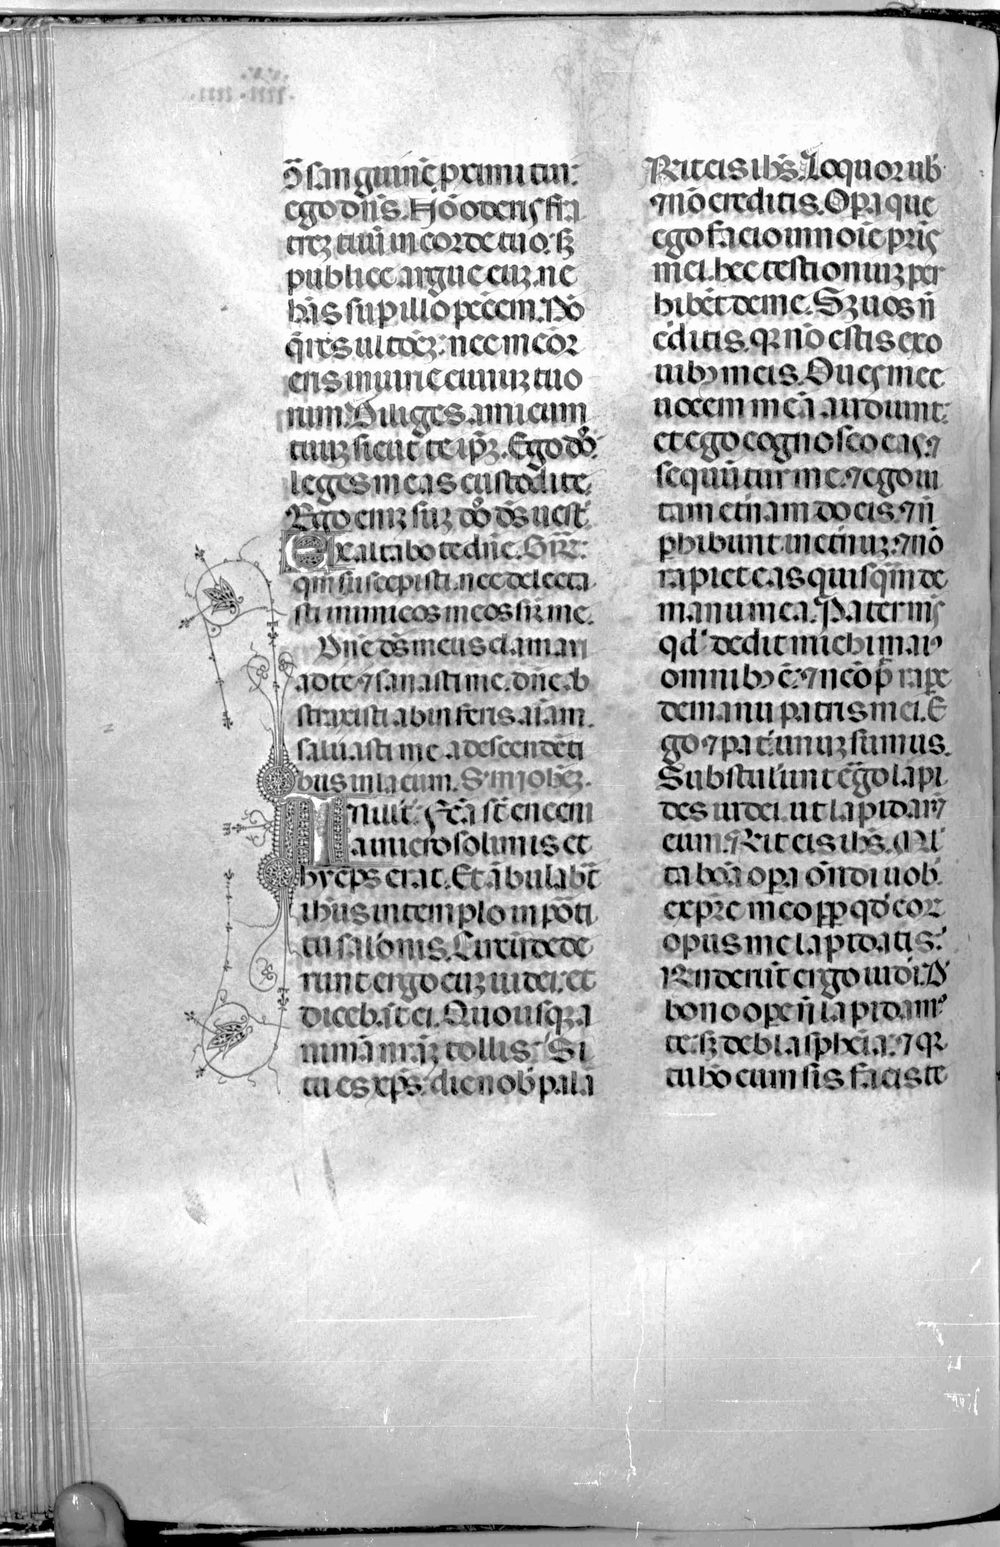 ꝯ̃ sanguinẽ proximi tui:
ego dñs. Nõ oderis frã
treʒ tuũ in corde tuo. sʒ
publice argue euʒ. ne
hãs sup illo pecẽm. Nõ
q̃res ultoẽʒ. nec meõr
eris iniurie ciuiuʒ tuo
rum. Diliges amicum
tuuʒ sicut te ip̃ʒ. Ego dñs
leges meas custodite.
Ego eniʒ suʒ dñs ds̃ uest̃.
Exaltabo te dñe. Gr̃.
qm̃ suscepisti. nec delecta
sti inimicos meos sr̃ me.
Dñe ds̃ meus clamaui
ad te ⁊ sanasti me. dñe ab
straxisti ab inferis aĩam.
saluasti me a descendẽti
bus in lacum. S. m̃ johẽʒ.
IN illo t̃. Fc̃a sũt encem
a in ierosolimis et
hyẽps erat. Et ãbulab̃t
ih̃us in templo in porti
cu salõnis. Circũdede
runt ergo euʒ iudei. et
diceb̃ãt ei. Quousqʒ a
nimã nr̃aʒ tollis. Si
tu es xp̃s. dic nob̃ pala
Rñt eis ih̃s. Loquor uob̃
⁊ nõ creditis. Opa que
ego facio in noĩe pris̃
mei. hec testioniuʒ per
hibẽt de me. Sʒ uos ñ
c̃ditis. qꝛ nõ estis ex o
uibꝰ meis. Oues mee
uocem meã audiunt:
et ego cognosco eas. ⁊
sequũtur me. ⁊ ego ui
tam et̃nam do eis. ⁊ ñ
p̃ibunt in et̃nuʒ. ⁊ nõ
rapiet eas quisq̃m de
manu mea. Pater mꝰ
qd̃ dedit michi maiꝰ
omnibꝰ ẽ. ⁊ nẽo p̃t rape
de manu patris mei. E
go ⁊ pat̃ unuʒ sumus.
Substulũnt ẽgo lapi
des iudei. ut lapidar̃t
eum. Rñt eis ih̃s. Ml̃
ta bõa opa oñdi uob̃
ex pr̃e meo pp qd̃ eoꝛ
opus me lapidatis.
Rñderũt ergo iudi. D̃
bono ope ñ lapidamꝰ
te. sʒ de blasphẽia. ⁊ qꝛ
tu hõ cum sis facis te